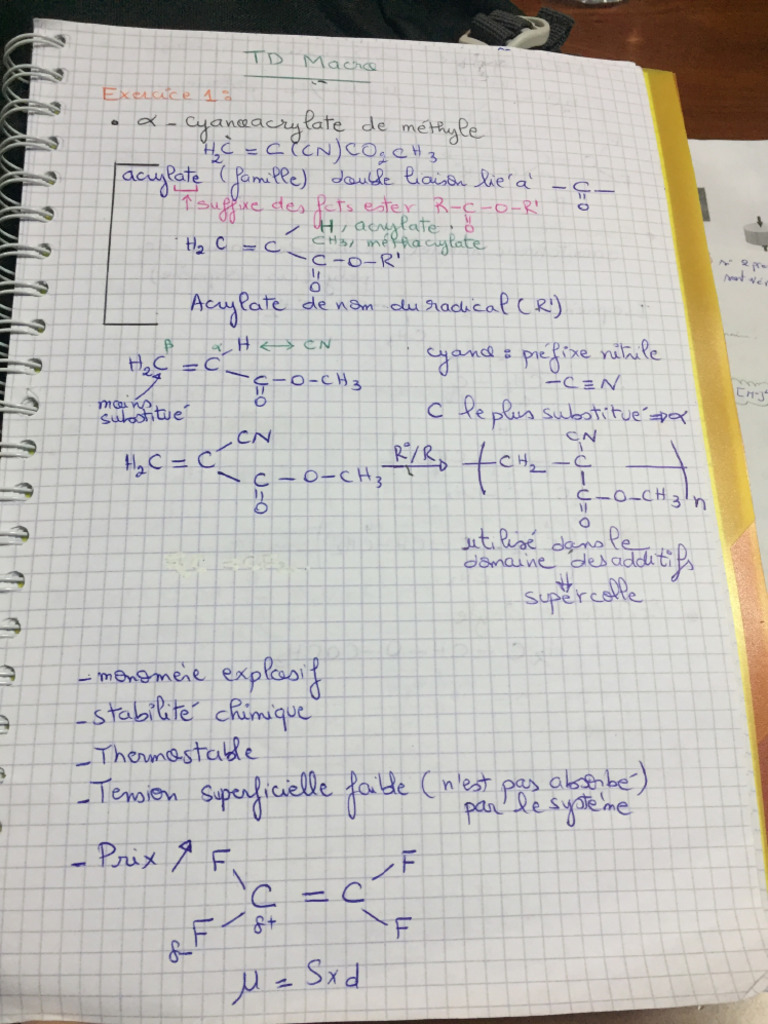 TD Macro
Exercice 1 :
• α - cyanoacrylate de méthyle
H₂C = C(CN)CO₂CH₃
acrylate (famille) double liaison lié à - C -
O
↑ suffixe des fcts ester R-C-O-R'
O
H, acrylate
CH₃, méthacrylate
H₂C = C
C-O-R'
O
Acrylate de nom du radical (R')
β α H ↔ CN
H₂C = C
C-O-CH₃
O
moins
substitué
cyano : préfixe nitrile
-C≡N
C le plus substitué ⇒ α
CN
H₂C = C
C - O - CH₃
O
R°/R
CN
CH₂ - C
C-O-CH₃
O
n
utilisé dans le
domaine des additifs
⇓
supercolle
- monomère explosif
- stabilité chimique
- Thermostable
- Tension superficielle faible (n'est pas absorbé)
par le système
- Prix ↗
F F
C = C
δ+
F F
δ-
μ = Sxd